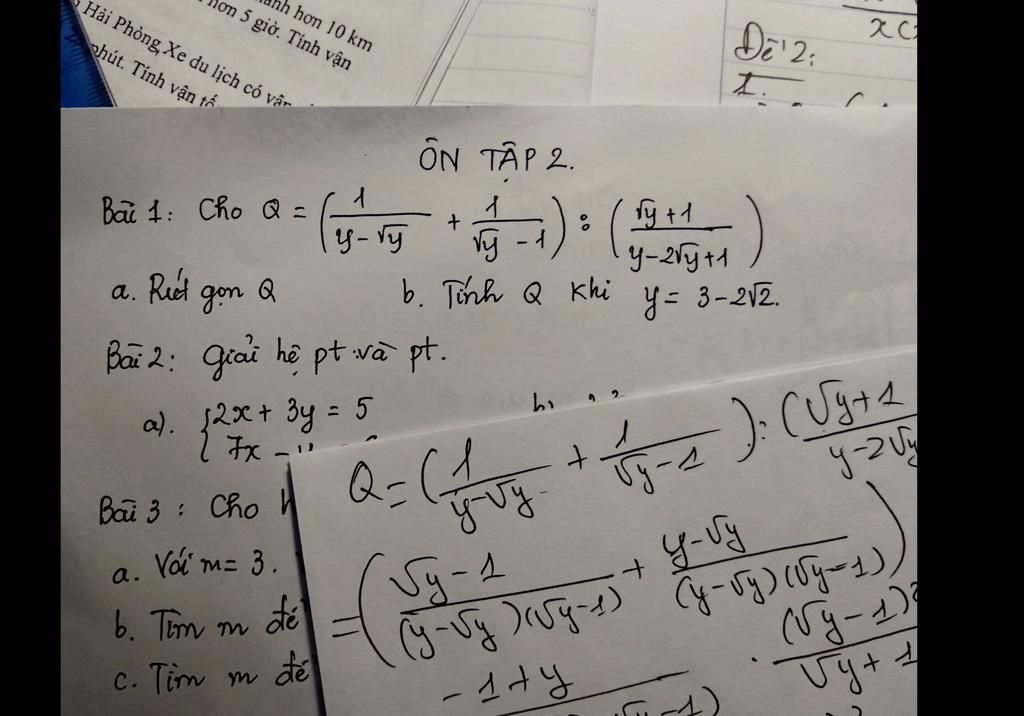 hơn 10 km
hơn 5 giờ. Tính vận
Hải Phòng. Xe du lịch có vận
phút. Tính vận tố
Đề 2:
1.
ÔN TẬP 2.
Bài 1: Cho Q = (1/(y-√y) + 1/(√y-1)) : ((√y+1)/(y-2√y+1))
a. Rút gọn Q b. Tính Q khi y = 3-2√2.
Bài 2: Giải hệ pt và pt.
a). {2x + 3y = 5
7x -
Bài 3: Cho
a. Với m = 3.
b. Tìm m để
c. Tìm m để
Q = (1/(y-√y) + 1/(√y-1)) : ((√y+1)/(y-2√y
= ((√y-1)/((y-√y)(√y-1)) + (y-√y)/((y-√y)(√y-1)))
-1+y · (√y-1)²/(√y+1)
√y-1)